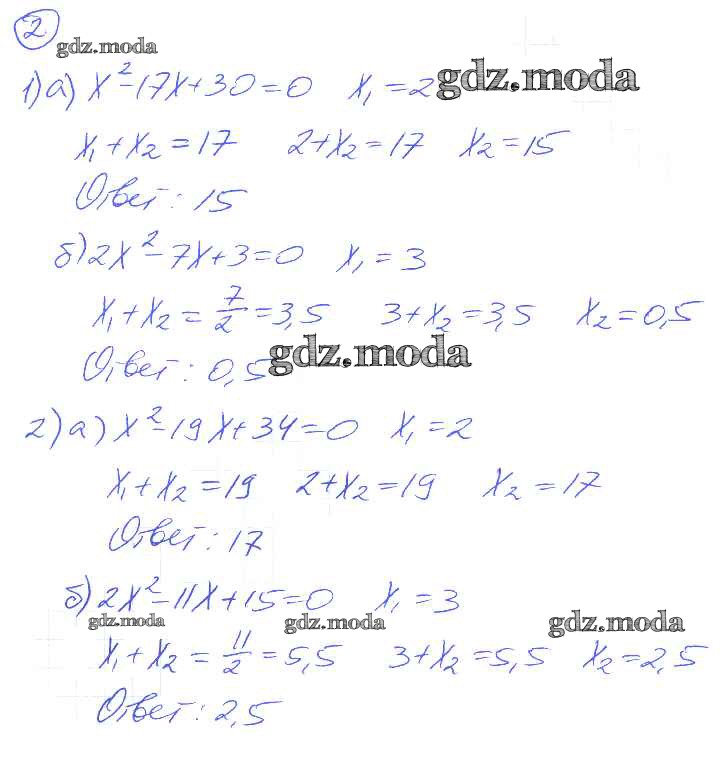 2
gdz.moda
1) а) x²-17x+30=0 x₁=2 gdz.moda
x₁+x₂=17 2+x₂=17 x₂=15
Ответ: 15
б) 2x²-7x+3=0 x₁=3
x₁+x₂=7/2=3,5 3+x₂=3,5 x₂=0,5
Ответ: 0,5 gdz.moda
2) а) x²-19x+34=0 x₁=2
x₁+x₂=19 2+x₂=19 x₂=17
Ответ: 17
б) 2x²-11x+15=0 x₁=3
gdz.moda gdz.moda gdz.moda
x₁+x₂=11/2=5,5 3+x₂=5,5 x₂=2,5
Ответ: 2,5